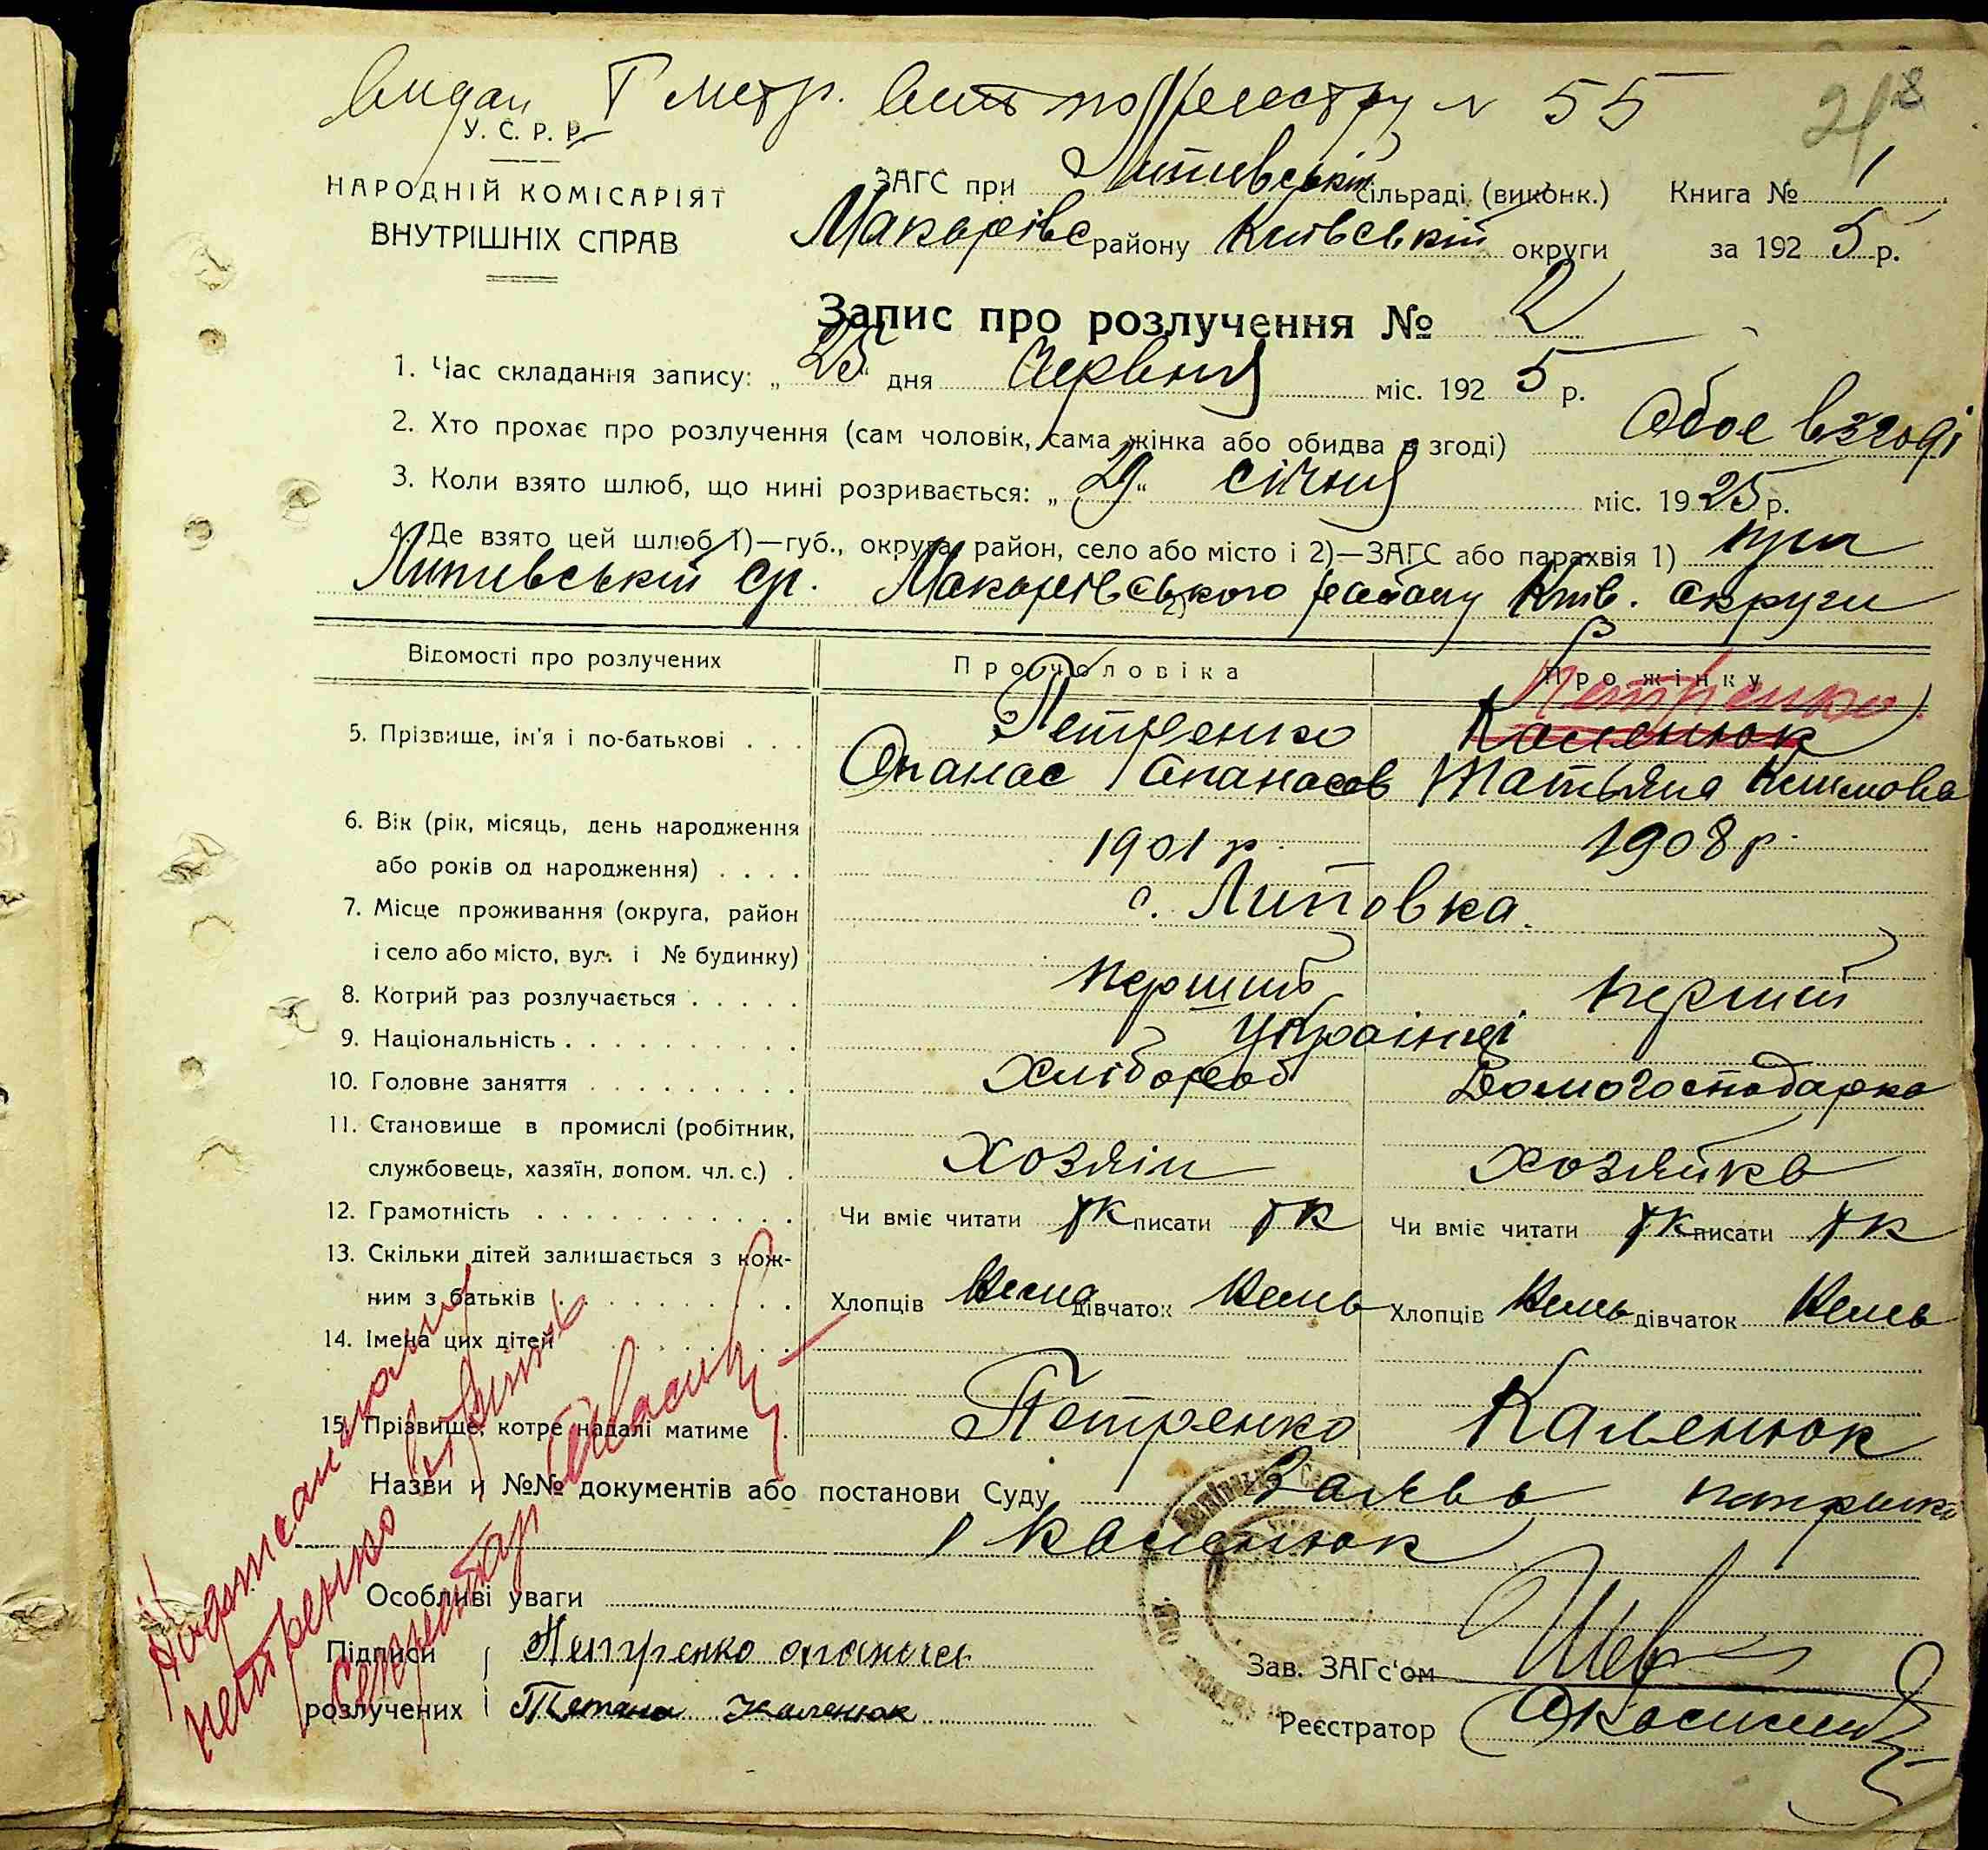 видан 1 метр. вит по Реестру № 55
У. С. Р. Р.
НАРОДНІЙ КОМІСАРІЯТ
ВНУТРІШНІХ СПРАВ
ЗАГС при Липивській сільраді (виконк.) Книга № 1
Макарівс району Київській округи за 192 5 р.
Запис про розлучення № 2
1. Час складання запису: „ 25 “ дня Червня міс. 192 5 р.
2. Хто прохає про розлучення (сам чоловік, сама жінка або обидва в згоді) Обоє в згоді
3. Коли взято шлюб, що нині розривається: „ 29 “ січня міс. 19 25 р.
4. Де взято цей шлюб 1)—губ., округа, район, село або місто і 2)—ЗАГС або парахвія 1) при
Липивській ср. Макарівського району Київ. округи
2)
Відомості про розлучених Про чоловіка Про жінку
Петренко
5. Прізвище, ім'я і по-батькові . . . Петренко Каленюк
Опанас Опанасов Татьяна Климова
6. Вік (рік, місяць, день народження
або років од народження) . . . . 1901 р. 1908 р.
7. Місце проживання (округа, район
і село або місто, вул. і № будинку) с. Липовка.
8. Котрий раз розлучається . . . . . перший перший
9. Національність . . . . . . . . . . українці
10. Головне заняття . . . . . . . . . Хлібороб Домогосподарка
11. Становище в промислі (робітник,
службовець, хазяїн, допом. чл. с.) . хозяін хозяйка
12. Грамотність . . . . . . . . . . . Чи вміє читати так писати так Чи вміє читати так писати так
13. Скільки дітей залишається з кож-
ним з батьків . . . . . . . . . . Хлопців Нема дівчаток Нема Хлопців Нема дівчаток Нема
14. Імена цих дітей . . . . . . .
15. Прізвище, котре надалі матиме . Петренко Каленюк
Назви и №№ документів або постанови Суду Заява петренко
і каленюк
Особливі уваги
Підписи Петренко опанас
розлучених Тетяна Каленюк
Зав. ЗАГс'ом
Реєстратор
петренко
Секретар